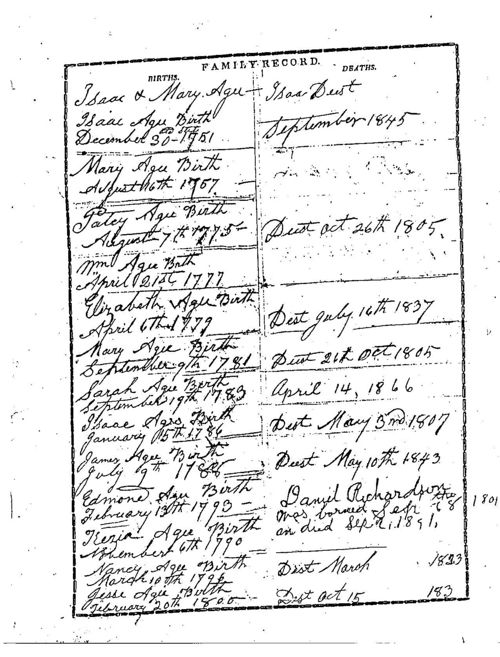 FAMILY RECORD.
BIRTHS.
DEATHS.
Isaac & Mary Agee
Isaac Agee Birth
December 30 - 1751
Mary Agee Birth
August 16th 1757
Agee Birth
August 7th 1775
Wm Agee Birth
April 21st 1777
Elizabeth Agee Birth
April 6th 1779
Mary Agee Birth
September 9th 1781
Sarah Agee Birth
September 19th 1783
Isaac Birth
January 15th 1786
James Agee Birth
July 9th 1788
Edmone Agee Birth
February 13th 1793
Agee Birth
November 6th 1790
Nancy Agee Birth
March 10th 1796
Jesse Agee Birth
February 20th 1800
Isaac Diest
September 1845
Diest Oct 26th 1805.
Dest July 16th 1837
Diest 26th Oct 1805
April 14, 1866
Dest May 3rd 1807
Diest May 10th 1843
Daniel Richardson
was borned Sept 1801
an died Sep 1, 1891,
Dest March 1823
Dest Oct 15 183